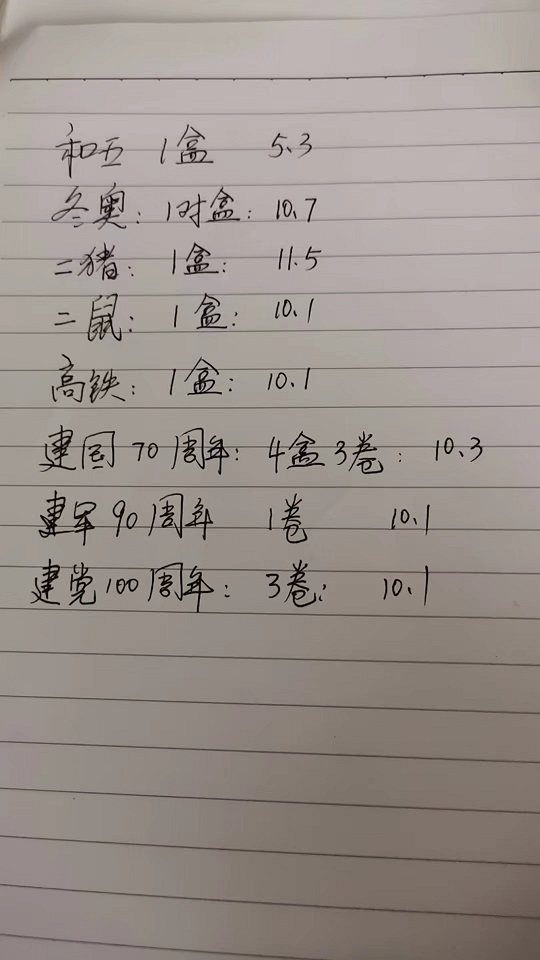 和五 1盒 5.3
冬奥: 1对盒: 10.7
二猪: 1盒: 11.5
二鼠: 1盒: 10.1
高铁: 1盒: 10.1
建国70周年: 4盒3卷: 10.3
建军90周年 1卷 10.1
建党100周年: 3卷: 10.1